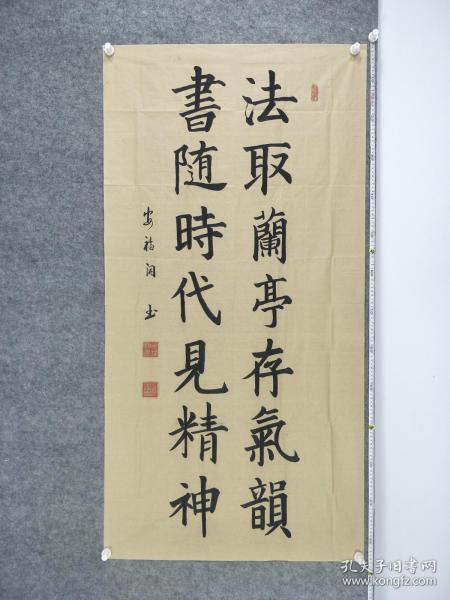 法取蘭亭存氣韻
書隨時代見精神
安福润书
孔夫子旧书网
www.kongfz.com